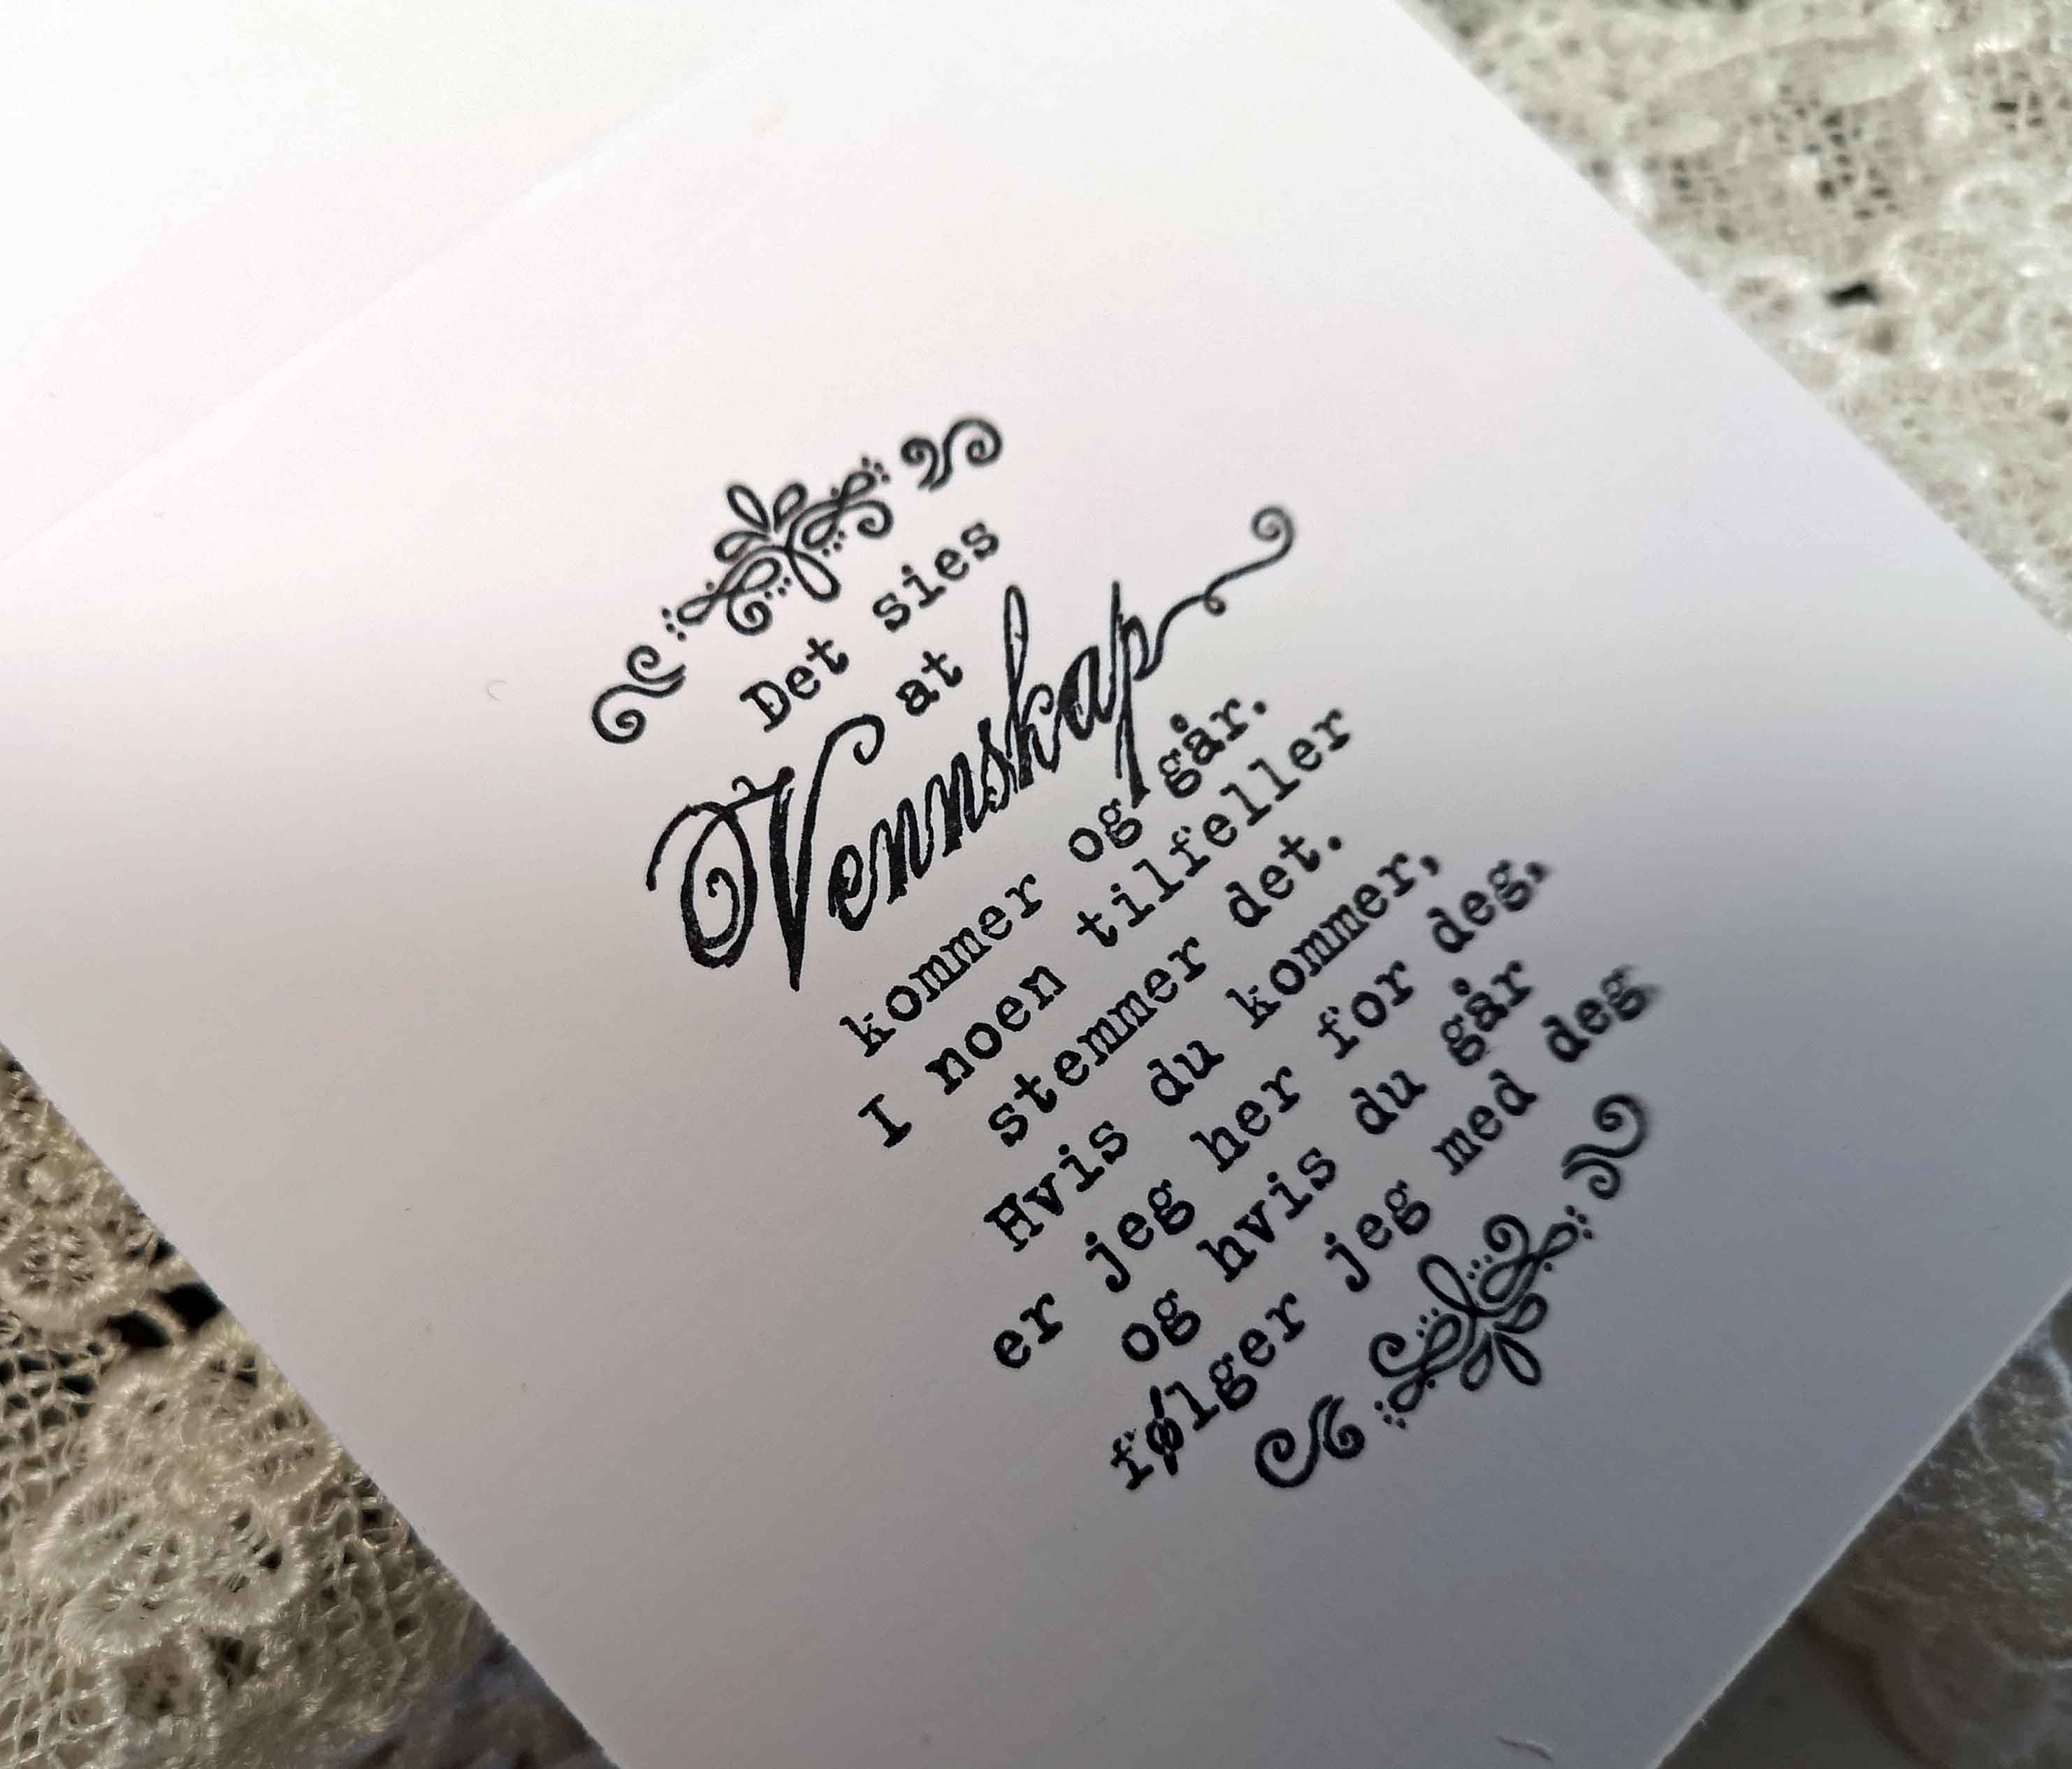 Det sies
at
Vennskap
kommer og går.
I noen tilfeller
stemmer det.
Hvis du kommer,
er jeg her for deg,
og hvis du går
følger jeg med deg